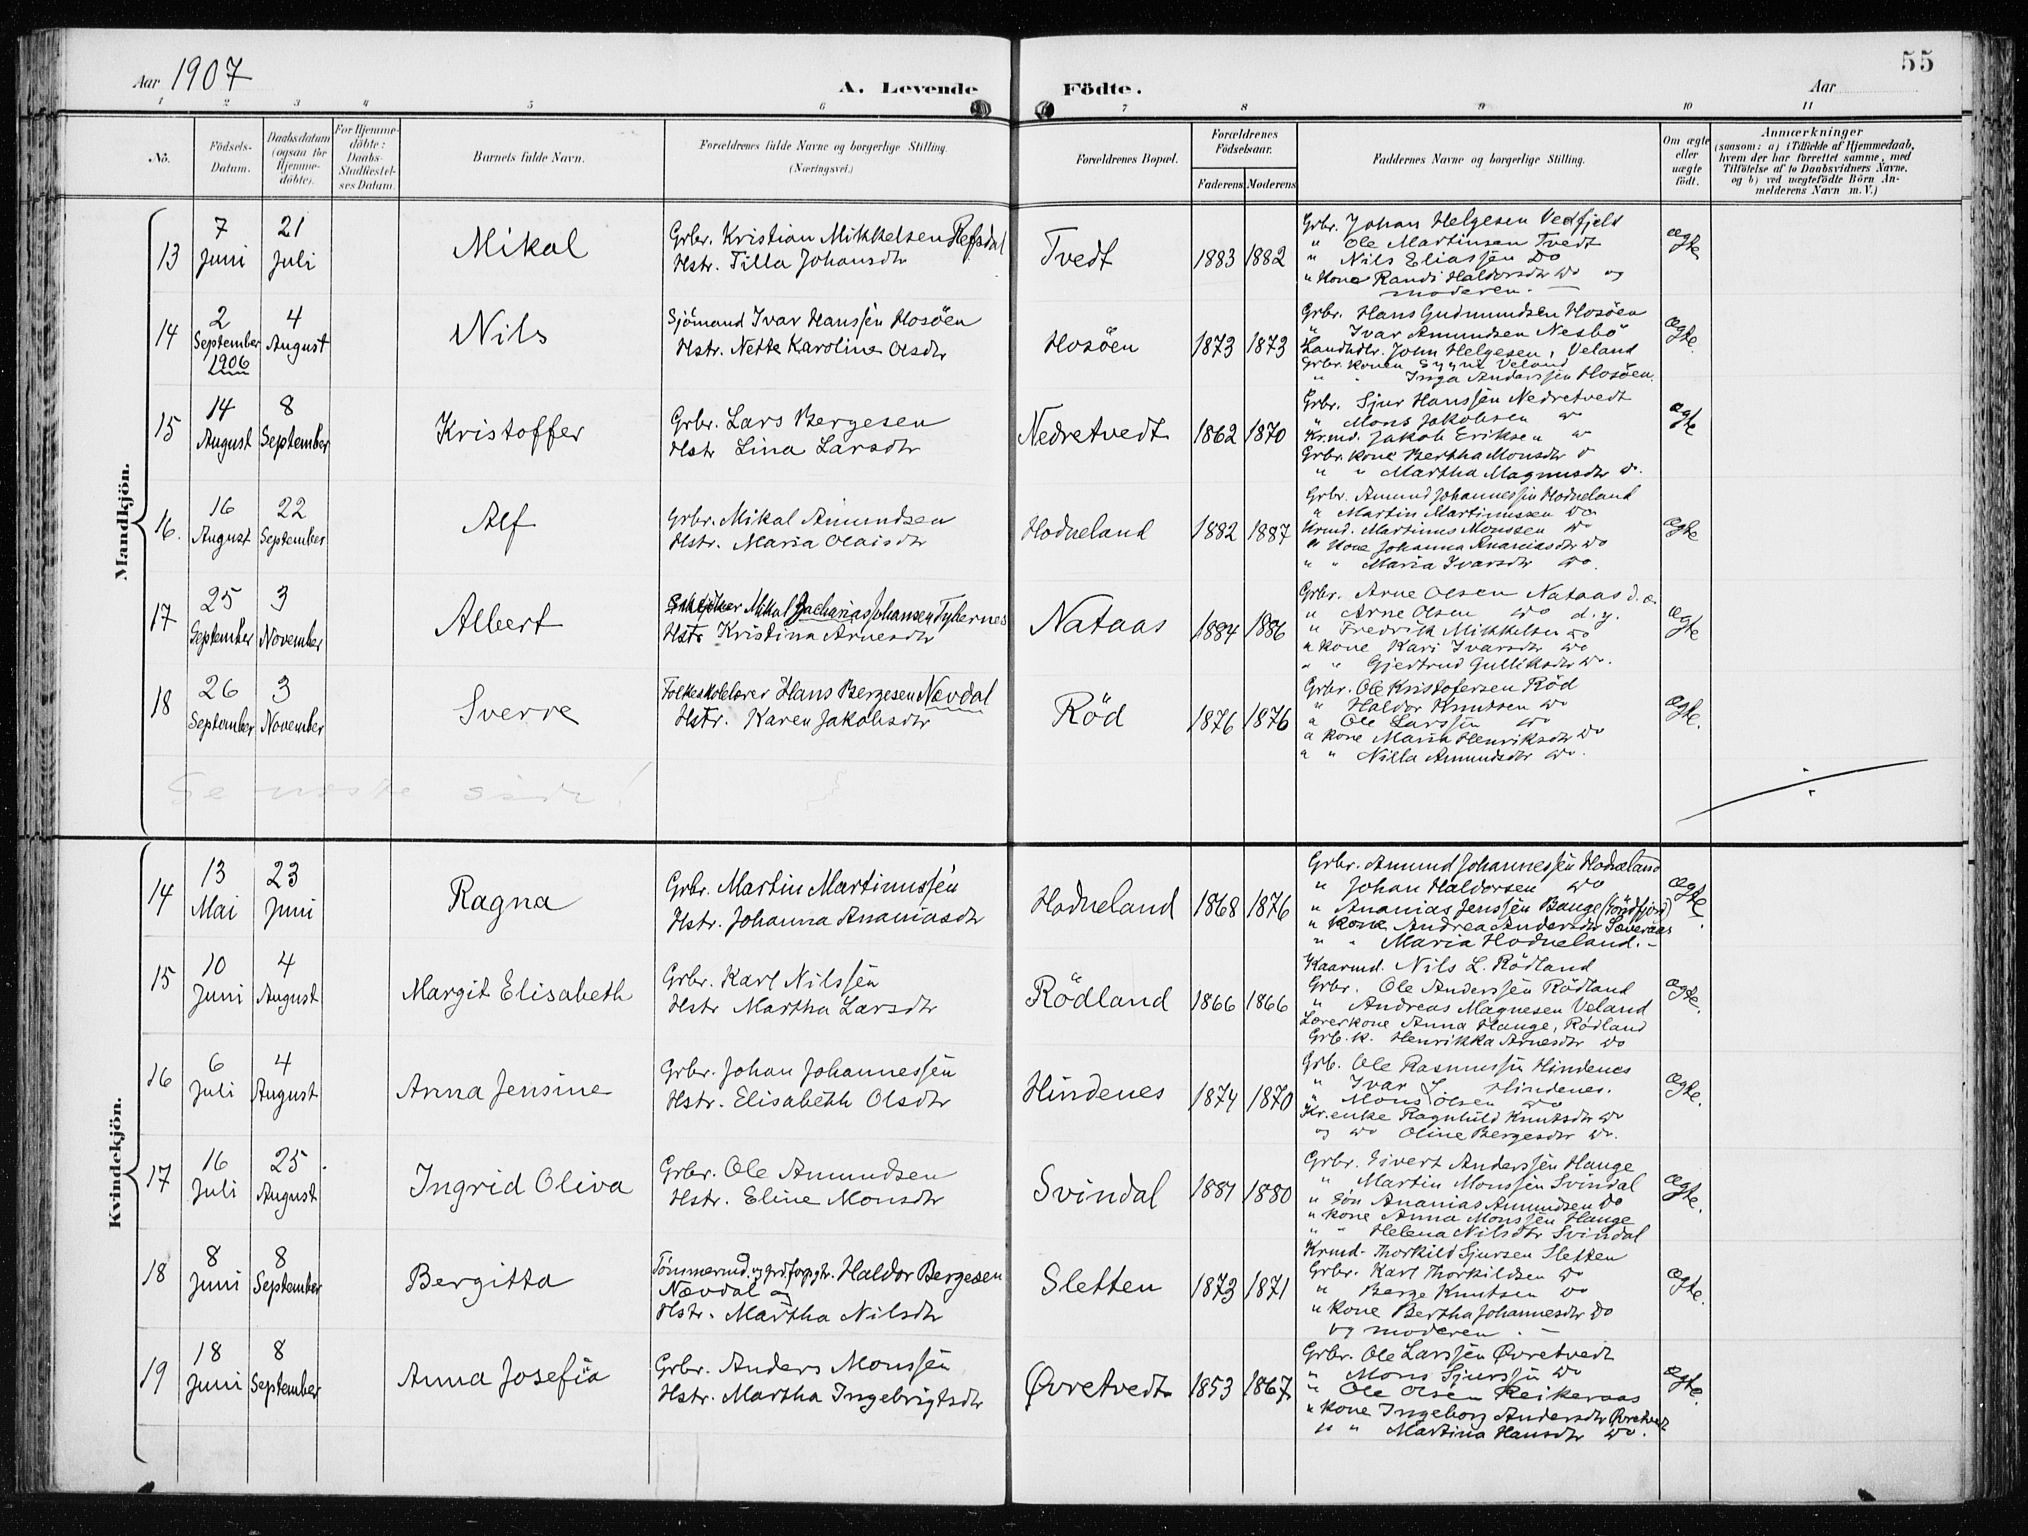 Aar 1907
A. Levende Födte.
55
Aar
1 2 3 4 5 6 7 8 9 10 11
Nö.
Födsels-Datum.
Daabsdatum (ogsaa for Hjemmedöbte).
For Hjemmedöbte: Daabs-Stadfestelses Datum.
Barnets fulde Navn.
Forældrenes fulde Navne og borgerlige Stilling. (Næringsvei.)
Forældrenes Bopæl.
Forældrenes Födselsaar.
Faderens Moderens
Faddernes Navne og borgerlige Stilling.
Om ægte eller uægte födt.
Anmærkninger
(saasom: a) i Tilfælde af Hjemmedaab, hvem der har forrettet samme, med Tilföielse af to Daabsvidners Navne, og b) ved uægtefödte Börn Anmelderens Navn m. V.)
Mandkjön.
13
7 Juni
21 Juli
Mikal
Grbr. Kristian Mikkelsen Refsdal
Hstr. Tilla Johansdtr
Tvedt
1883 1882
Grbr. Johan Helgesen Vedfjeld
" Ole Martinsen Tvedt
" Nils Eliassen Do
" Kone Randi Haldorsdtr Do og
moderen.
ægte
14
2 September 1906
4 August
Nils
Sjömand Ivar Hanssen Hosöen
Hstr. Nette Karoline Olsdtr
Hosöen
1873 1873
Grbr. Hans Gudmundsen Hosöen
" Ivar Amundsen Nesbö
Landhdlr. John Helgesen, Veland
Grbr. konen Veland
" " Inga Anderssen Hosöen.
ægte.
15
14 August
8 September
Kristoffer
Grbr. Lars Bergesen
Hstr Lina Larsdtr
Nedretvedt
1862 1870
Grbr. Sjur Hanssen Nedretvedt
" Mons Jakobsen Do
Krmd. Jakob Eriksen Do
Grbr. kone Bertha Monsdtr Do
" " Martha Magnusdtr Do.
ægte
16.
16 August
22 September
Alf
Grbr. Mikal Amundsen
Hstr. Maria Olaisdtr
Hodneland
1882 1887
Grbr. Amund Johannessen Hodneland
" Martin Martinussen Do
Krmd. Martinus Monssen Do
" Kone Johanna Ananiasdtr Do
" " Maria Ivarsdtr Do.
ægte
17
25 September
3 November
Albert
Mikal Zacharias Johansen Tyhernes
Hstr Kristina Arnesdtr
Nataas
1884 1886
Grbr. Arne Olsen Nataas d. æ.
" Arne Olsen Do d. y.
" Fredrik Mikkelsen Do
" kone Kari Ivarsdtr Do
" " Gjertrud Gulliksdtr Do.
ægte
18
26 September
3 November
Sverre
Folkeskolelærer Hans Bergesen Nævdal
Hstr. Karen Jakobsdtr
Röd
1876 1876
Grbr. Ole Kristofersen Röd
" Haldor Knutsen Do
" Ole Larssen Do
" kone Maria Henriksdtr Do
" " Nilla Amundsdtr Do.
ægte.
Se næste side!
Kvindekjön.
14
13 Mai
23 Juni
Ragna
Grbr. Martin Martinussen
Hstr. Johanna Ananiasdtr
Hodneland
1868 1876
Grbr. Amund Johannessen Hodneland
" Johan Haldorsen Do
" Ananias Jenssen Bauge (Söndfjord)
" Kone Andrea Andersdtr Sæveraas
" " Maria Hodneland.
ægte.
15
10 Juni
4 August
Margit Elisabeth
Grbr. Karl Nilssen
Hstr Martha Larsdtr
Rödland
1866 1866
Kaarmd. Nils L. Rödland
Grbr. Ole Anderssen Rödland
" Andreas Magnesen Veland
Lærerkone Anna Hauge, Rödland
Grb. k. Henrikka Arnesdtr Do
ægte.
16
6 Juli
4 August
Anna Jensine
Grbr. Johan Johannessen
Hstr. Elisabeth Olsdtr
Hindenes
1874 1870
Grb. Ole Rasmussen Hindenes
" Ivar L. Hindenes.
" Mons Olsen Do
Kr. enke Ragnhild Knutsdtr Do
og Do Oline Bergesdtr Do.
ægte.
17
16 Juli
25 August
Ingrid Oliva
Grbr. Ole Amundsen
Hstr. Eline Monsdtr
Svindal
1881 1880
Grbr. Sivert Anderssen Hauge
" Martin Monssen Svindal
" Sön Ananias Amundsen Do
" kone Anna Monssen Hauge
" " Helena Nilsdtr Svindal
ægte.
18
8 Juni
8 September
Bergitta
Tömmermd. og Haldor Bergesen
Nævdal og
Hstr. Martha Nilsdtr
Sletten
1873 1871
Krmd. Thorkild Sjursen Sletten
Grbr. Karl Thorkildsen Do
" Berge Knutsen Do
" kone Bertha Johannesdtr Do
og moderen.
ægte.
19
18 Juni
8 September
Anna Josefia
Grbr. Anders Monssen
Hstr. Martha Ingebrigtsdtr
Øvretvedt
1853 1867
Grbr. Ole Larssen Øvretvedt
" Mons Sjurssen Do
" Ole Olsen Reikeraas
" kone Ingeborg Andersdtr Øvretvedt
" " Martina Hansdtr Do.
ægte.